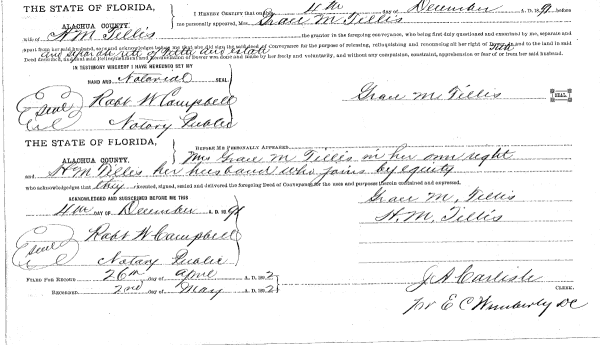 THE STATE OF FLORIDA,
ALACHUA COUNTY.
I HEREBY CERTIFY that on 4th day of December A. D. 1891 before
me personally appeared, Mrs. Grace M Tillis
wife of H M Tillis the grantor in the foregoing conveyance, who being first duly questioned and examined by me, separate and
apart from her said husband, did acknowledge before me that she did sign the said deed of Conveyance for the purpose of releasing, relinquishing and renouncing all her right of Dower in and to the land in said
and separate estate
Deed described, and that said relinquishment and renunciation of dower was done and made by her freely and voluntarily, and without any compulsion, constraint, apprehension or fear of or from her said husband.
IN TESTIMONY WHEREOF I HAVE HEREUNTO SET MY
HAND AND Notarial SEAL
seal
Robt W Campbell
Notary Public
Grace M Tillis SEAL
THE STATE OF FLORIDA,
ALACHUA COUNTY.
BEFORE ME PERSONALLY APPEARED
Mrs Grace M Tillis in her own right
and H M Tillis her husband who joins by equity
who acknowledges that they executed, signed, sealed and delivered the foregoing Deed of Conveyance for the uses and purposes therein contained and expressed.
ACKNOWLEDGED AND SUBSCRIBED BEFORE ME THIS
4th DAY OF December A. D. 1891
Grace M. Tillis
H. M. Tillis
seal
Robt W Campbell
Notary Public
FILED FOR RECORD 26th day of April A. D. 1892
RECORDED 2nd day of May A. D. 1892
J A Carlisle
CLERK.
Pr E C Wimberly DC